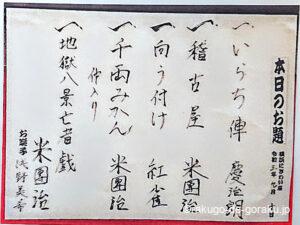 本日のお題
横浜にぎわい座
令和三年九月
一 いらち俥 慶治朗
一 稽古屋 米團治
一 向う付け 紅雀
一 千両みかん 米團治
仲入り
一 地獄八景亡者戯 米團治
お囃子 浅野美希
rakugo-de-goraku.jp